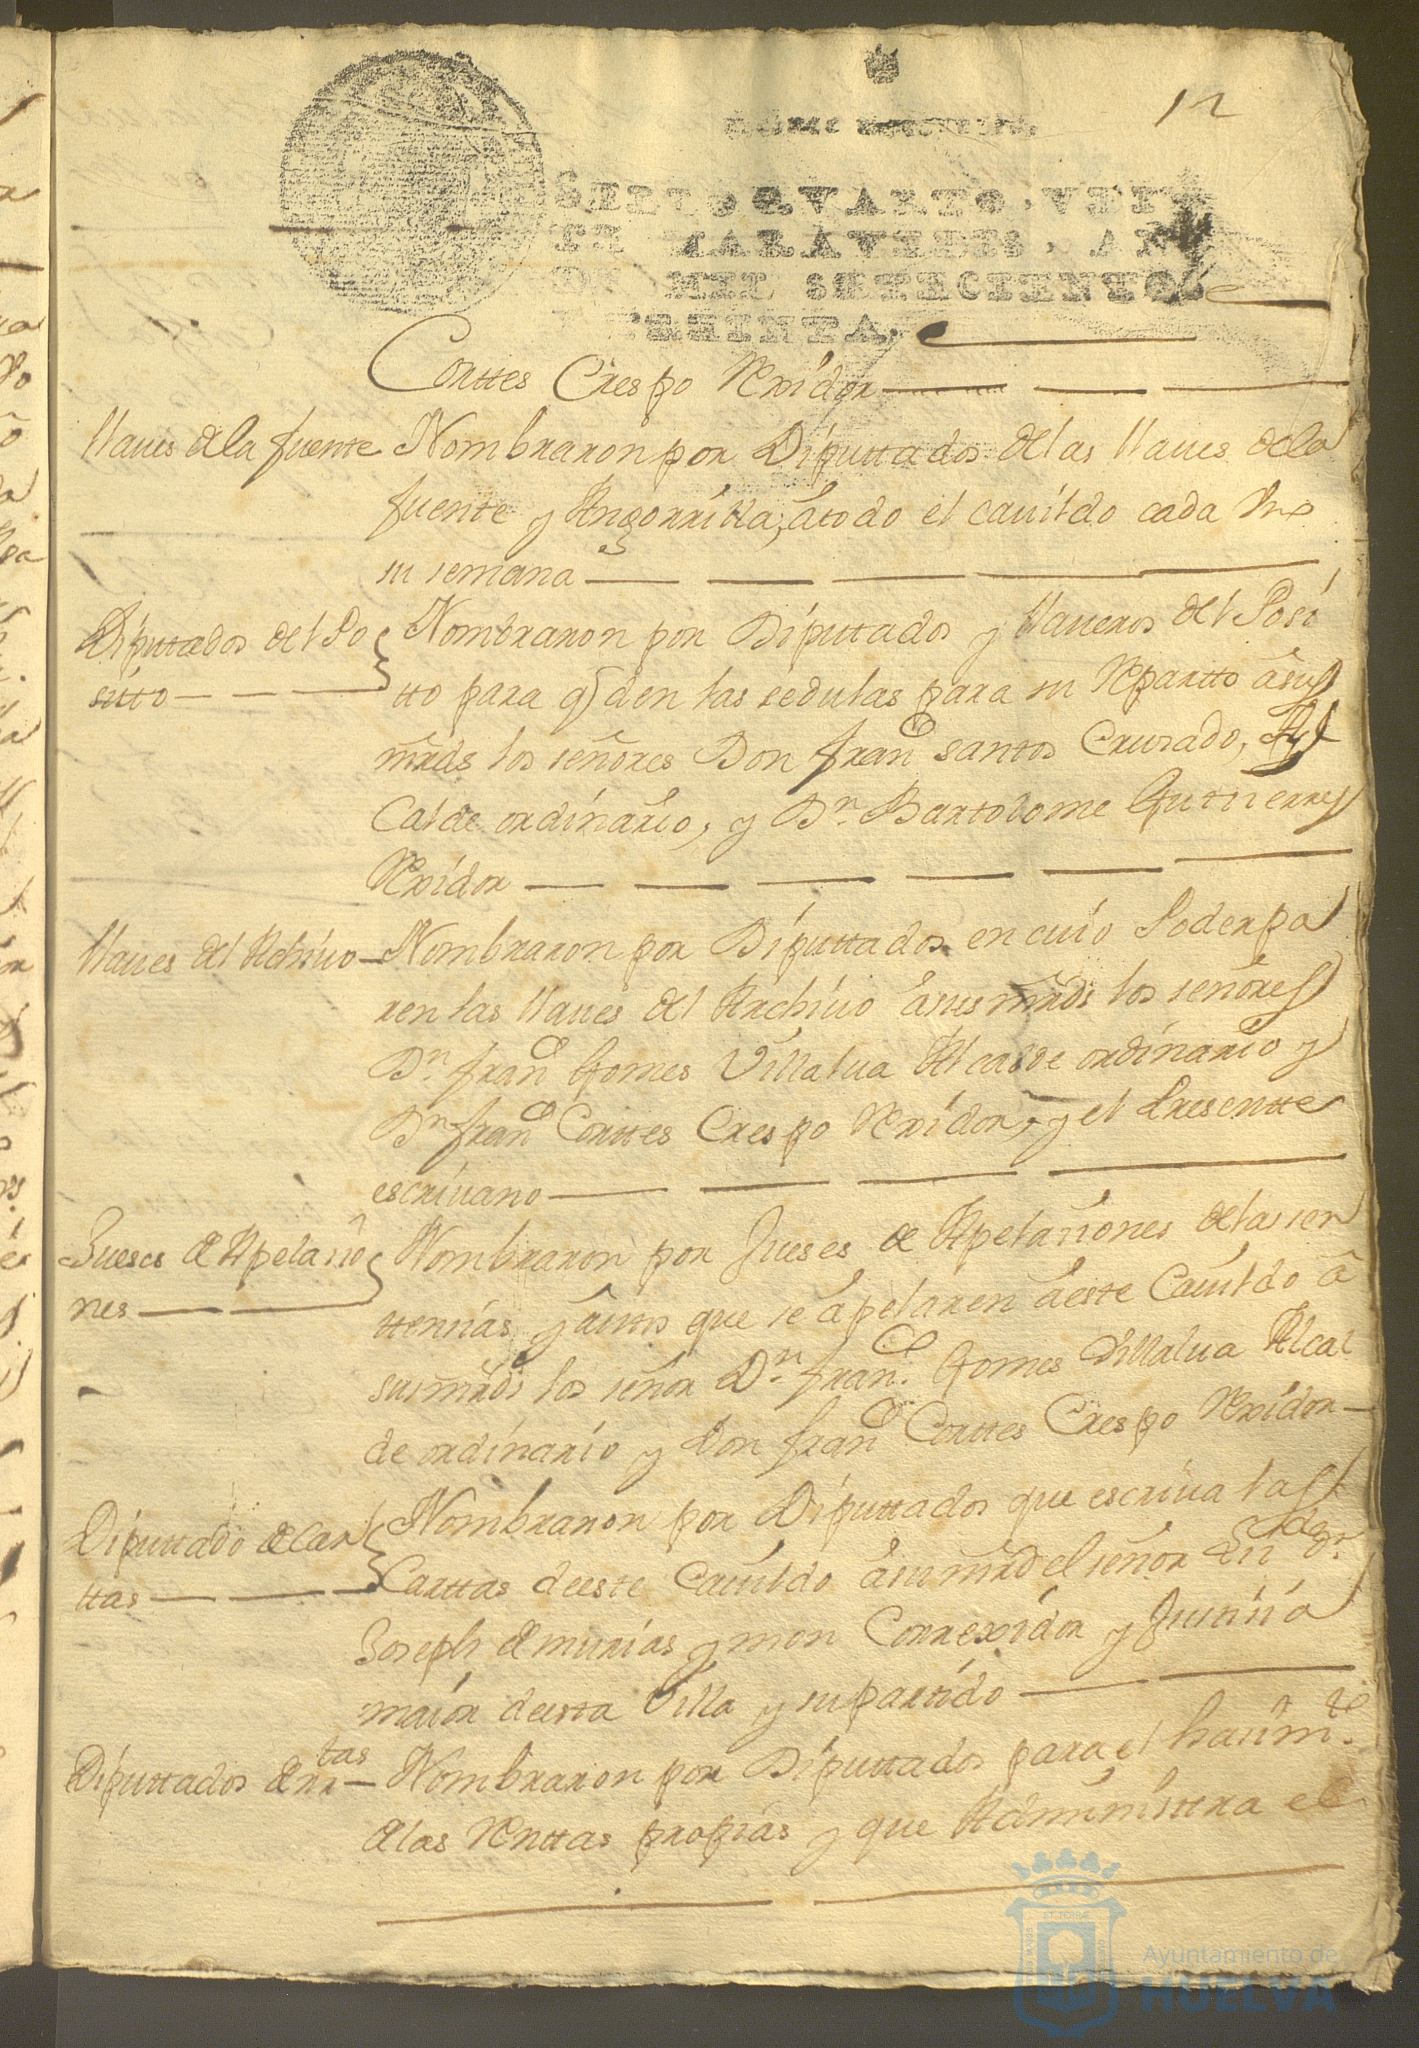 12
SELLO QVARTO, VEIN
TE MARAVEDIS, AÑO
DE MIL SETECIENTOS
TREINTA.
Corttes Crespo Rexidor
llaues de la fuente Nombraron por Diputtados de las llaues de la
fuente y Angorrilla, a todo el cauildo cada Vno
su semana
Diputtados del Po Nombraron por Diputtados y llaueros del Posi
sitto
tto para q den las sedulas para su Repartto â sus
mrds los señores Don franco santos Cruzado, Al
Calde ordinario, y Dn Bartolome Gutierres
Rexidor
llaues del Archiuo Nombraron por Diputtados en cuio Poder pa
ren las llaues del Archiuo â sus mrds los señores
Dn franco Gomes Villalua Alcalde ordinario y
Dn franco Corttes Crespo Rexidor, y el Presentte
escriuano
Jueses de Apelasio Nombraron por Jueses de Apelasiones de las sen
nes
ttensias, y autos que se apelaren a este Cauildo â
sus mrds los señor Dn Franco Gomes Villalua Alcal
de ordinario y Don franco Corttes Crespo Rexidor
Diputtado de Car Nombraron por Diputtados que escriua las
ttas
Carttas de este Cauildo â su mrd el señor Lizdo Dn
Joseph de murias y mon Correxidor y Justisia
maior de esta Villa y su partido
Diputtados de rrtas Nombraron por Diputtados para el hasimto
de las Renttas propias y que Administra el
Ayuntamiento de
HUELVA